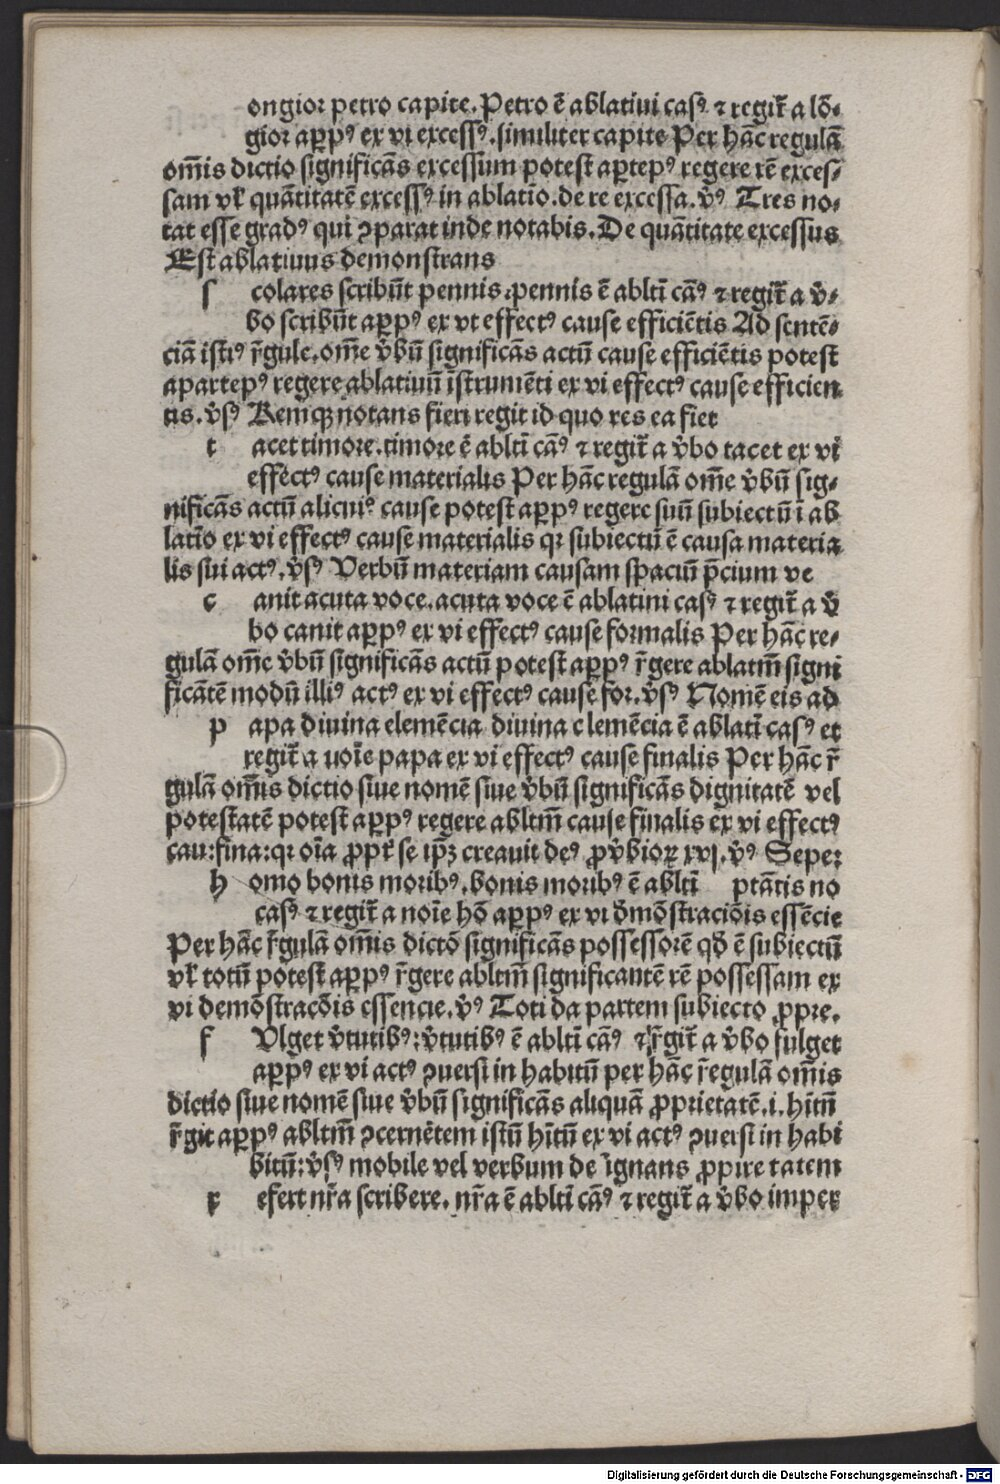 ongior petro capite. Petro ē ablatiui casꝰ ⁊ regit̄ a lō-
gior aꝑpꝰ ex vi excessꝰ. similiter capite Per hāc regulā
om̄is dictio significās excessum potest aꝑtepꝰ regere rē exces-
sam vl̄ quātitatē excessꝰ in ablatīo. de re excessa. v̄ꝰ Tres no-
tat esse gradꝰ qui ꝯparat inde notabis. De quātitate excessus
Est ablatiuus demonstrans
s colares scribūt pennis. pennis ē ablti cāꝰ ⁊ regit̄ a v̄-
bo scribūt aꝑpꝰ ex vt effectꝰ cause efficiētis Ad sentē-
ciā istiꝰ r̄gule. om̄e v̄bū significās actū cause efficiētis potest
apartepꝰ regere ablatiuū īstrumēti ex vi effectꝰ cause efficien
tis. v̄sꝰ Remqꝫ notans fieri regit id quo res ea fiet
t acet timore. timore ē ablti cāꝰ ⁊ regit̄ a v̄bo tacet ex vi
effectꝰ cause materialis Per hāc regulā om̄e v̄bū sig-
nificās actū alicuiꝰ cause potest aꝑpꝰ regere suū subiectū ī ab
latīo ex vi effectꝰ cause materialis qꝛ subiectū ē causa materia
lis sui actꝰ. v̄sꝰ Verbū materiam causam spaciū p̄cium ve
c anit acuta voce. acuta voce ē ablatini casꝰ ⁊ regit̄ a v̄
bo canit aꝑpꝰ ex vi effectꝰ cause formalis Per hāc re-
gulā om̄e v̄bū significās actū potest aꝑpꝰ r̄gere ablatm̄ signi
ficātē modū illiꝰ actꝰ ex vi effectꝰ cause for. v̄sꝰ Nomē eis ad
p apa diuina elemēcia diuina clemēcia ē ablatī casꝰ et
regit̄ a uoīe papa ex vi effectꝰ cause finalis Per hāc r̄
gulā om̄is dictio siue nomē siue v̄bū significās dignitatē vel
potestatē potest aꝑpꝰ regere abltm̄ cause finalis ex vi effectꝰ
cau: fina: qꝛ oīa ꝓpt̄ se ip̄ꝫ creauit deꝰ ꝓv̄bioꝝ xvj. v̄ꝰ Seper
h omo bonis moribꝰ. bonis moribꝰ ē ablti ptātis no
casꝰ ⁊ regit̄ a noīe hō aꝑpꝰ ex vi d̄mōstraciōis essēcie
Per hāc r̄gulā om̄is dictō significās possessorē qd̄ ē subiectū
vl̄ totū potest aꝑpꝰ r̄gere abltm̄ significantē rē possessam ex
vi demōstracōis essencie. v̄ꝰ Toti da partem subiecto ꝓpre.
f Vlget v̄tutibꝰ: v̄tutibꝰ ē ablti cāꝰ ⁊ r̄git̄ a v̄bo fulget
aꝑpꝰ ex vi actꝰ ꝯuersi in habitū per hāc r̄egulā om̄is
dictio siue nomē siue v̄bū significās aliquā ꝓprietatē. i. hītū
r̄git aꝑpꝰ abltm̄ ꝯcernētem istū hītū ex vi actꝰ ꝯuersi in habi
bitū: v̄sꝰ mobile vel verbum de īgnans ꝓpire tatem
r efert nr̄a scribere. nr̄a ē ablti cāꝰ ⁊ regit̄ a v̄bo imper
Digitalisierung gefördert durch die Deutsche Forschungsgemeinschaft - DFG